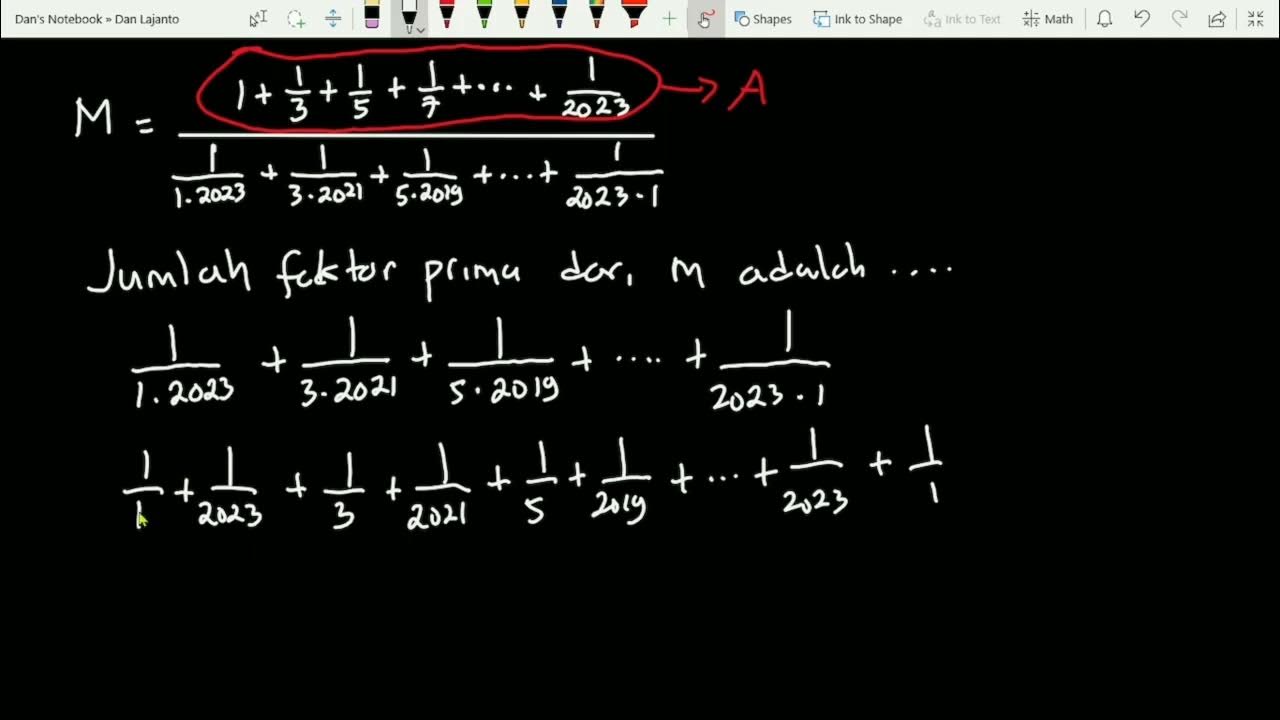 Dan's Notebook » Dan Lajanto Shapes Ink to Shape Ink to Text Math
M = (1 + 1/3 + 1/5 + 1/7 + ... + 1/2023) / (1/(1.2023) + 1/(3.2021) + 1/(5.2019) + ... + 1/(2023.1)) → A
Jumlah faktor prima dari M adalah ....
1/(1.2023) + 1/(3.2021) + 1/(5.2019) + .... + 1/(2023.1)
1/1 + 1/2023 + 1/3 + 1/2021 + 1/5 + 1/2019 + ... + 1/2023 + 1/1